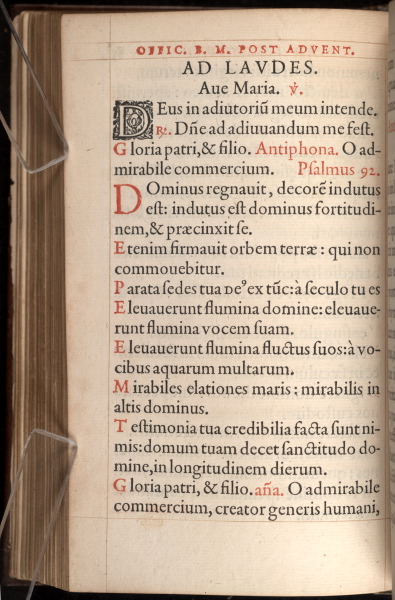 OFFIC. B. M. POST ADVENT.
AD LAVDES.
Aue Maria. ℣.
DEus in adiutoriũ meum intende.
℟. Dñe ad adiuuandum me fest.
Gloria patri,& filio. Antiphona. O ad-
mirabile commercium. Psalmus 92.
DOminus regnauit, decorẽ indutus
est: indutus est dominus fortitudi-
nem,& præcinxit se.
Etenim firmauit orbem terræ: qui non
commouebitur.
Parata sedes tua deꝰ ex tũc:à seculo tu es
Eleuauerunt flumina domine: eleuaue-
runt flumina vocem suam.
Eleuauerunt flumina fluctus suos:à vo-
cibus aquarum multarum.
Mirabiles elationes maris: mirabilis in
altis dominus.
Testimonia tua credibilia facta sunt ni-
mis:domum tuam decet sanctitudo do-
mine,in longitudinem dierum.
Gloria patri, & filio. aña. O admirabile
commercium, creator generis humani,